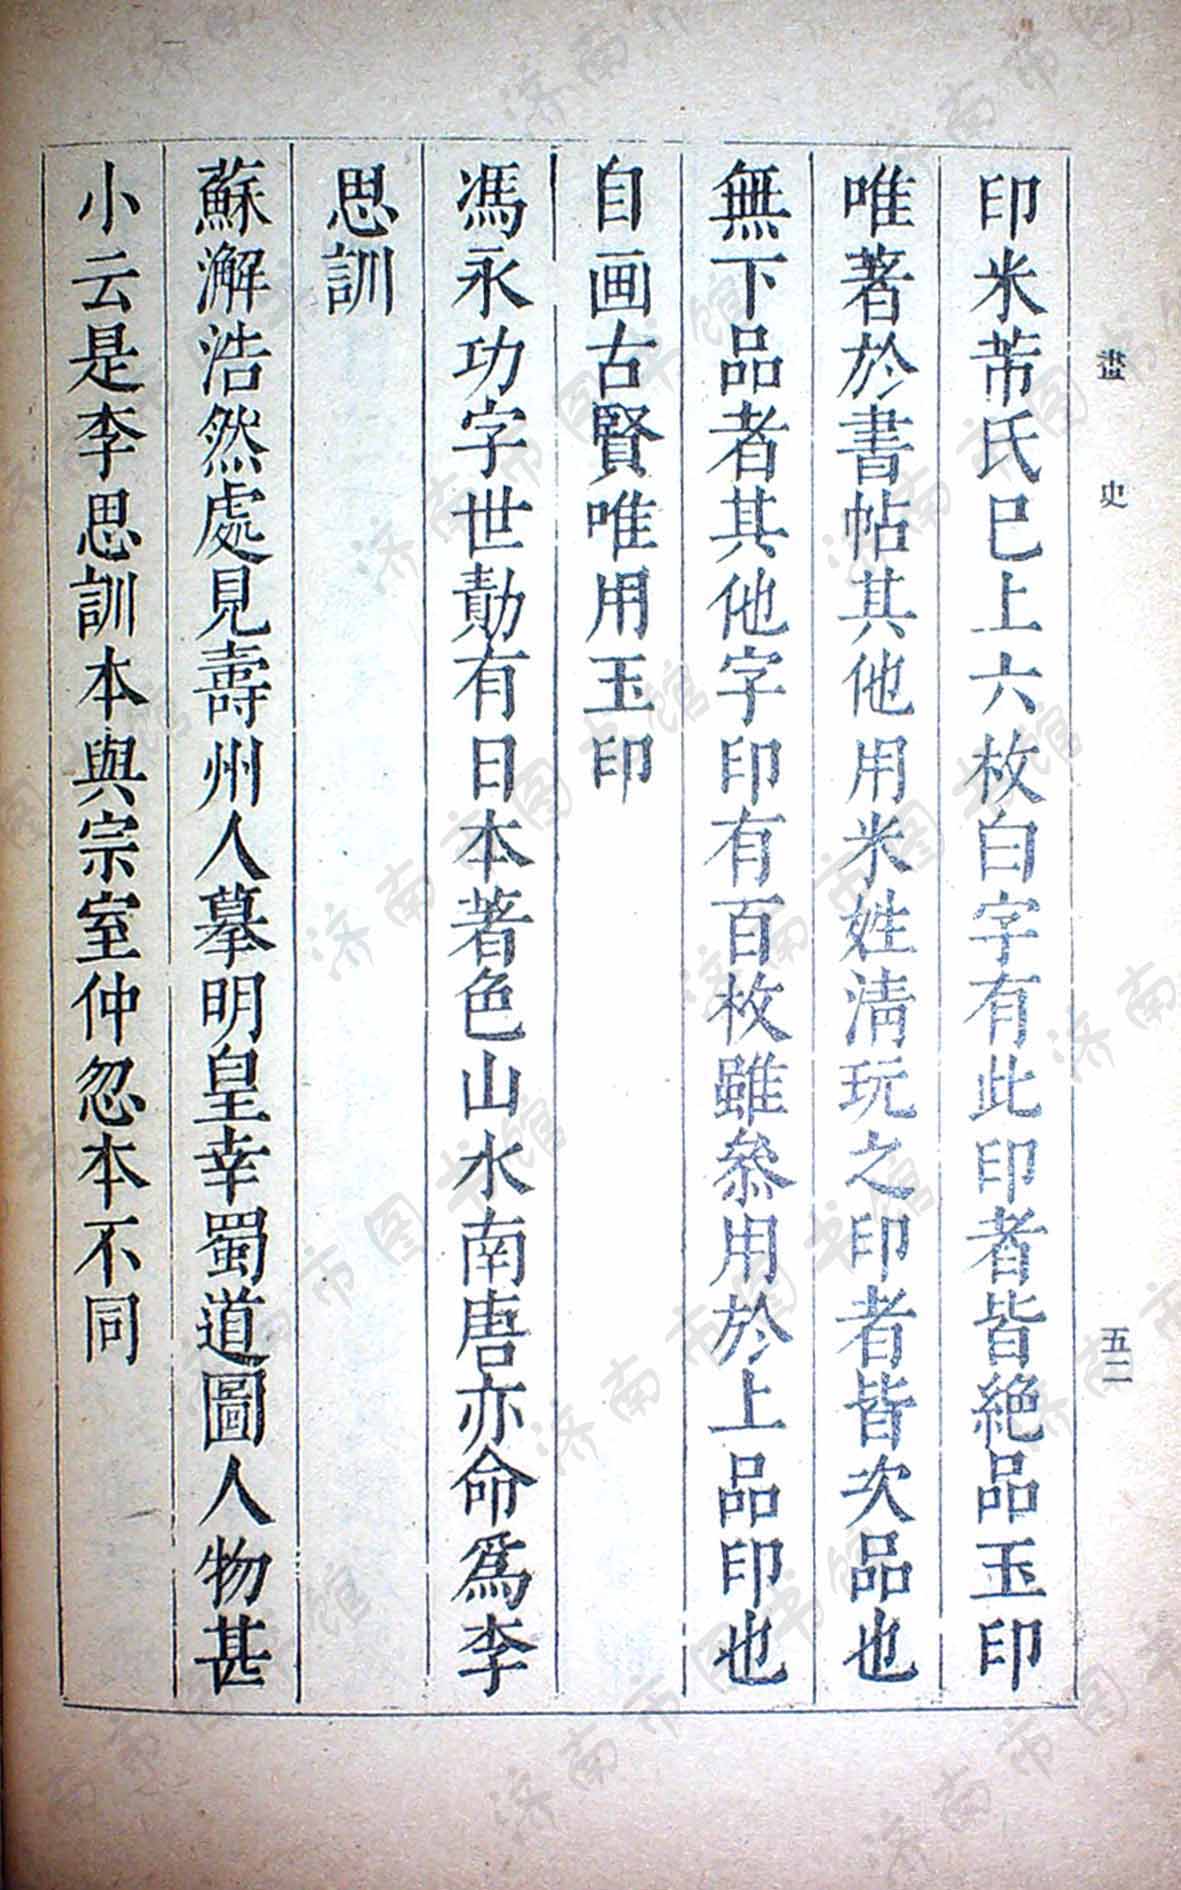 畫史
五二
印米芾氏已上六枚白字有此印者皆絕品玉印
唯著於書帖其他用米姓淸玩之印者皆次品也
無下品者其他字印有百枚雖叅用於上品印也
自画古賢唯用玉印
馮永功字世勣有日本著色山水南唐亦命爲李
思訓
蘇澥浩然處見壽州人摹明皇幸蜀道圖人物甚
小云是李思訓本與宗室仲忽本不同
济南市图书馆